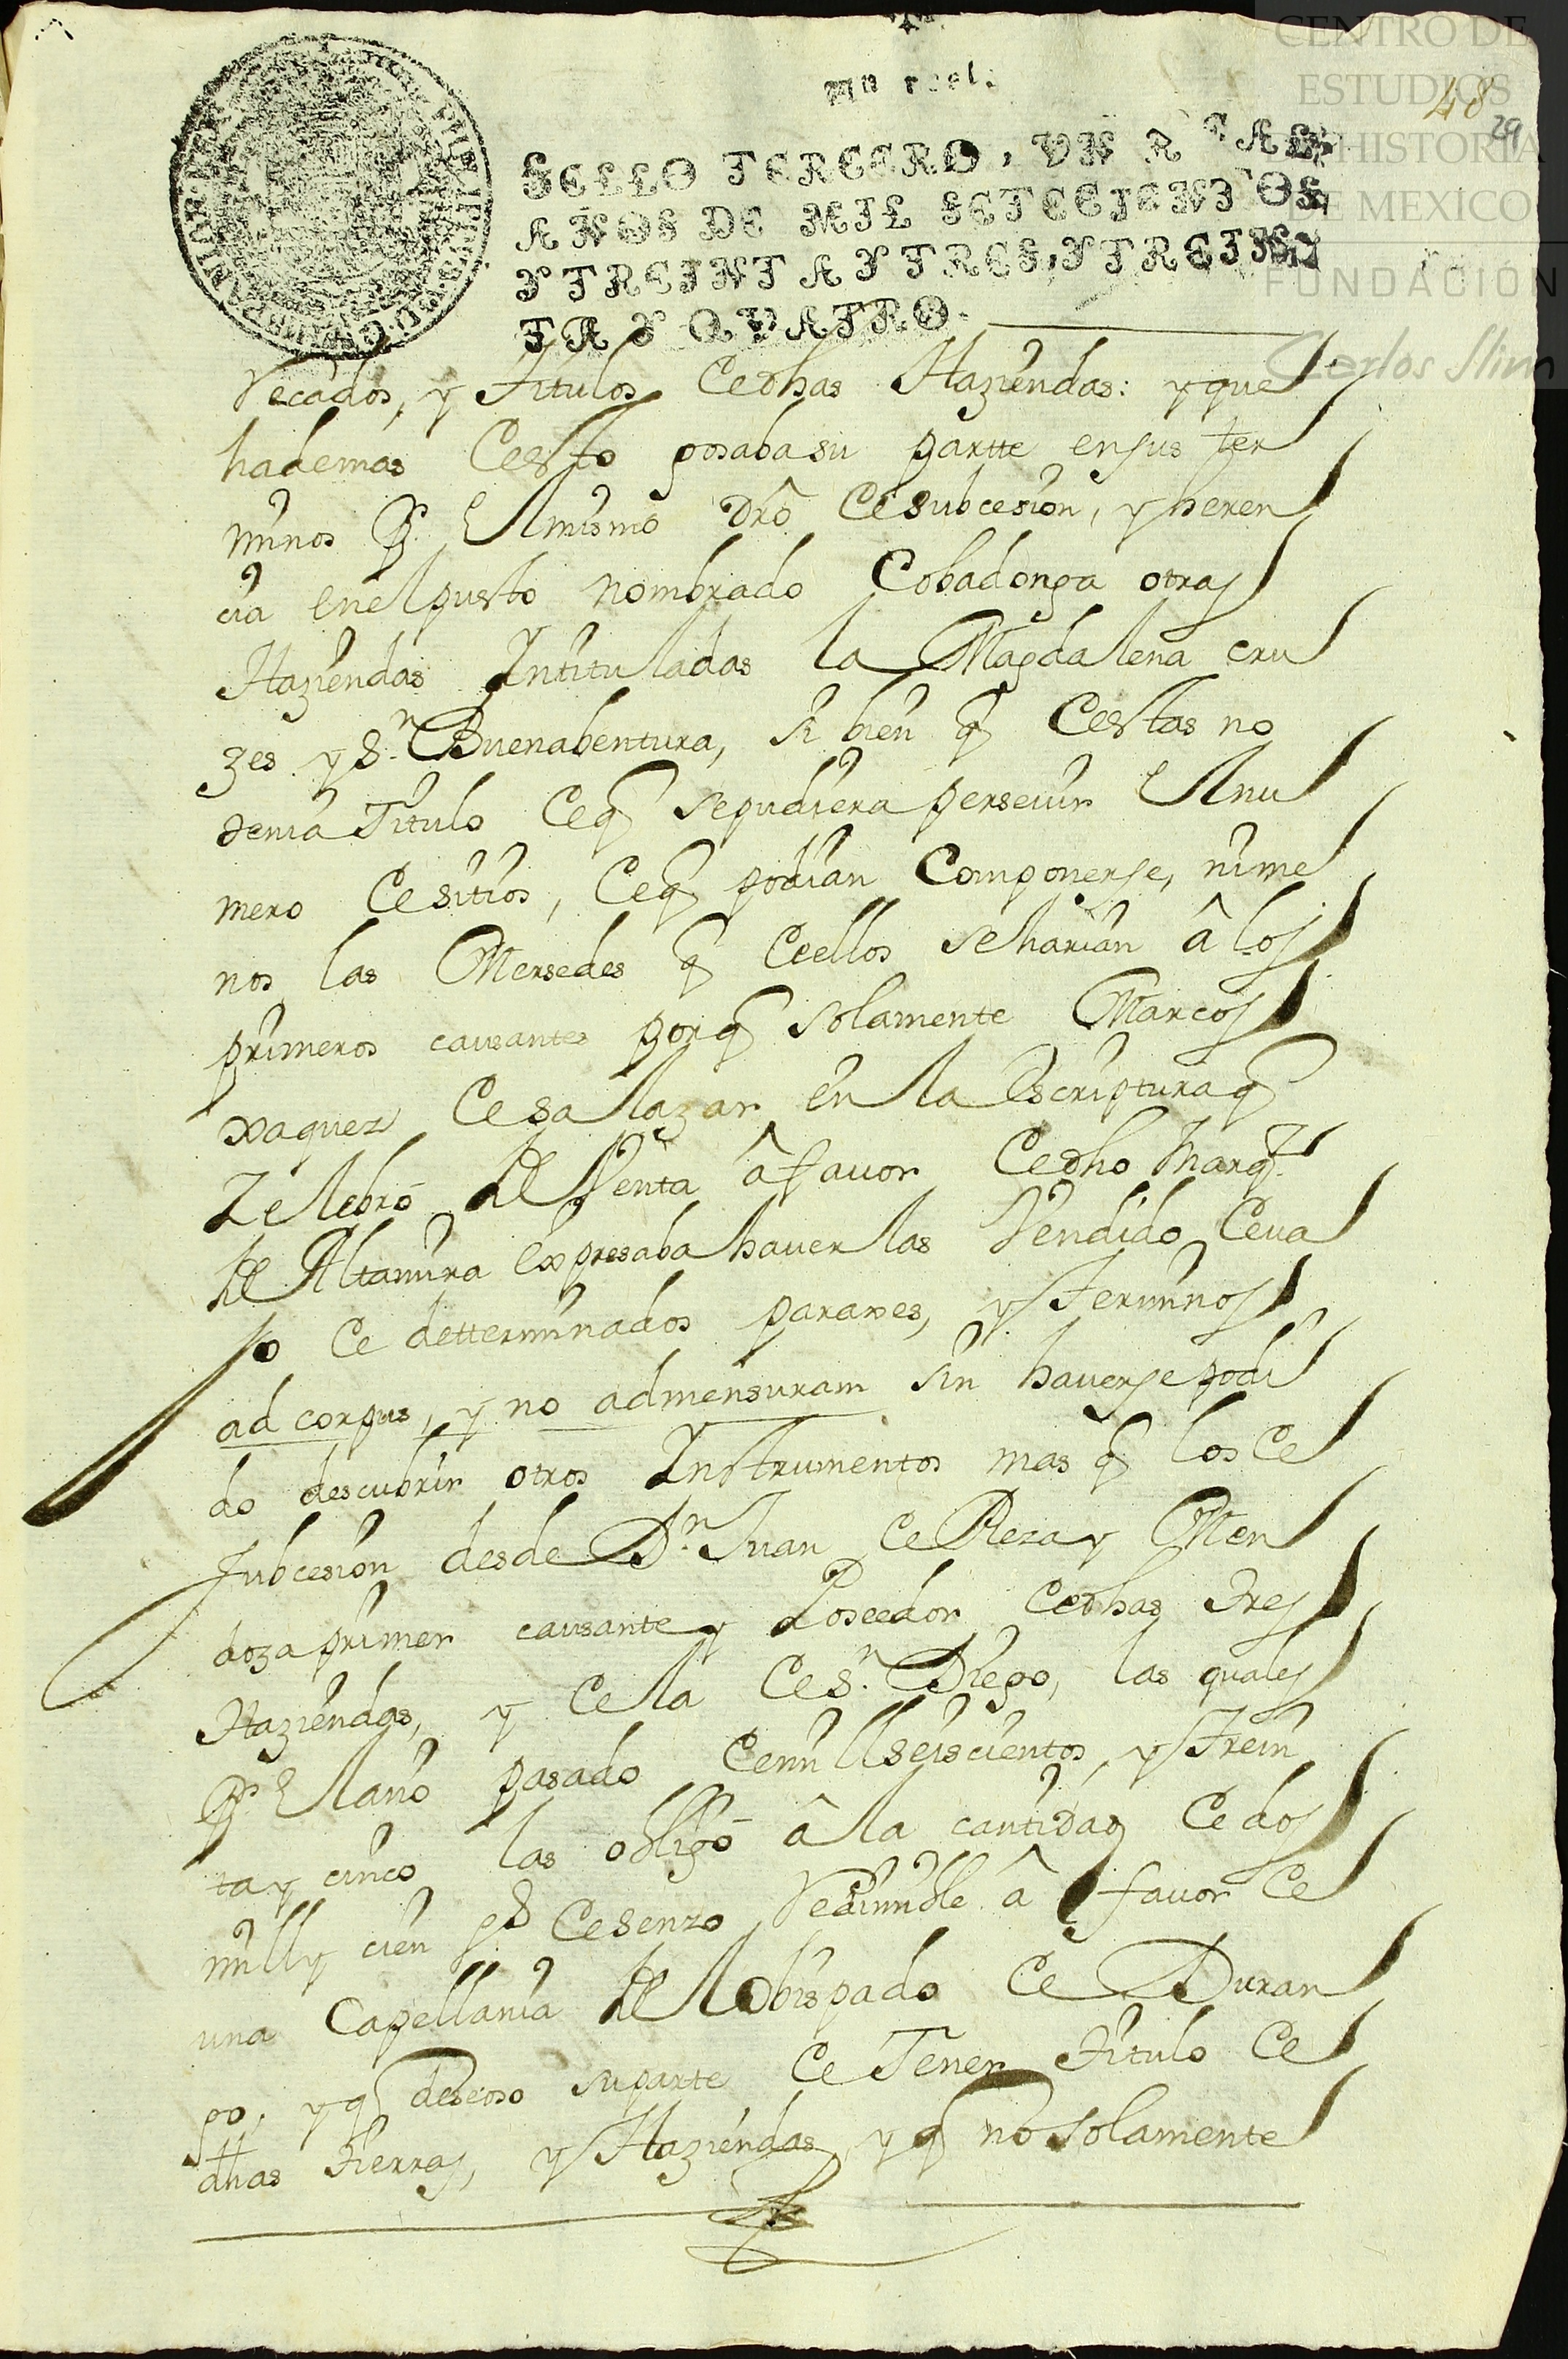 CENTRO DE
ESTUDIOS
DE HISTORIA
DE MEXICO
FUNDACIÓN
Carlos Slim
48
29
Un real.
SELLO TERCERO, VN REAL,
AÑOS DE MIL SETECIENTOS
Y TREINTA Y TRES, Y TREIN
TA Y QVATRO.
Recados, y Titulos de dhas Haziendas: y que
hademas de esto gosaba su partte en sus ter
minos pr. el mismo dro de subcesion, y heren
cia en el puesto nombrado Cobadonga otras
Haziendas Intituladas la Magdalena cru
zes y Sn. Buenabentura, si bien q de estas no
tenia Titulo de q se pudiera perseuir el nu
mero de sitios, de q podian Componerse, ni me
nos las Mersedes q de ellos se harian â los
primeros causantes porq solamente Marcos
xaquez de salazar en la Escriptura q
Zelebró de Venta â favor de dho Marqz.
de Altamira expresaba hauerlas Vendido deva
jo de determinados paraxes, y Terminos
ad corpus, y no admensuram sin hauerse podi
do descubrir otros Instrumentos mas q los de
subcesion desde Dn. Juan de Reza y Men
doza primer causante y Poseedor de dhas tres
Haziendas, y de la de Sn. Diego, las quales
pr. el año pasado de mill seiscientos, y trein
ta y cinco las obligó â la cantidad de dos
mill y cien ps de senzo Redimible â favor de
una Capellania del Obispado de Duran
go, y q deseoso su parte de Tener titulo de
dhas tierras, y Haziendas y q no solamente